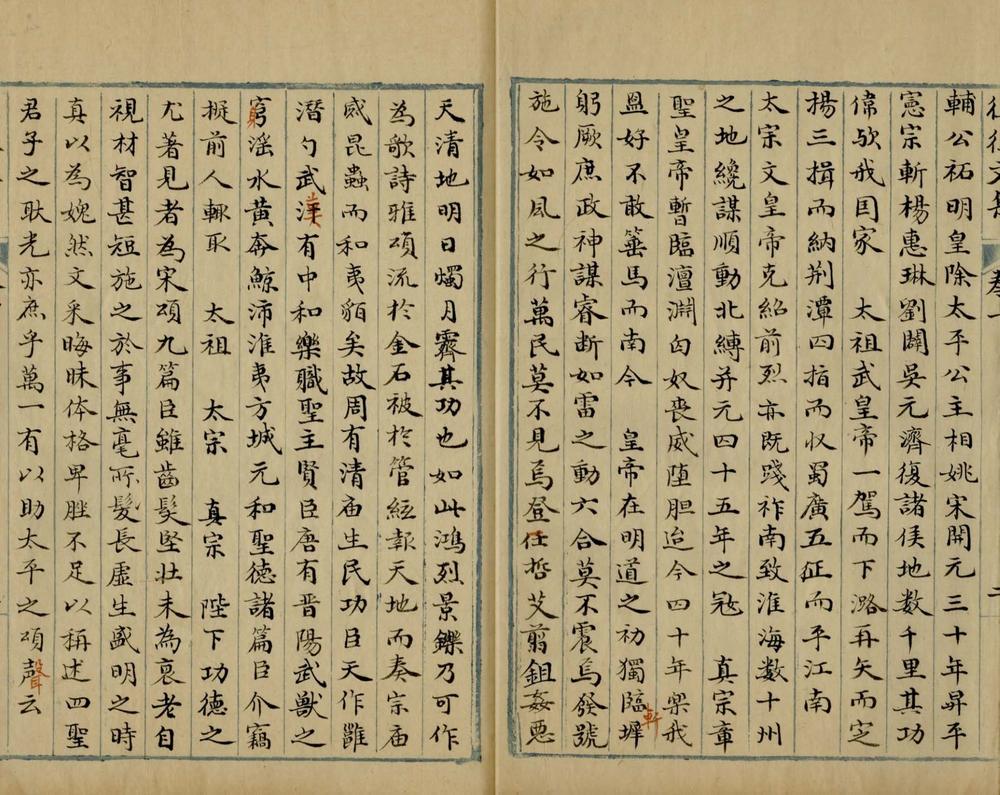 徂徠文集 卷一 二
輔公祏明皇除太平公主相姚宋開元三十年昇平
憲宗斬楊惠琳劉闢吳元濟復諸侯地数千里其功
偉歟我国家 太祖武皇帝一駕而下潞再矢而定
揚三揖而納荆潭四指而収蜀廣五征而平江南
太宗文皇帝克紹前烈亦既踐祚南致淮海数十州
之地纔謀順動北縛并元四十五年之冦 真宗章
聖皇帝暫臨澶淵匈奴喪威堕胆迨今四十年樂我
盟好不敢箠馬而南今 皇帝在明道之初獨臨墀
軒
躬厥庶政神謀睿断如雷之動六合莫不震焉發號
施令如風之行萬民莫不見焉登任哲艾剪鉏姦惡
天清地明日燭月霽其功也如此鴻烈景鑠乃可作
為歌詩雅頌流於金石被於管絰報天地而奏宗庙
感昆蟲而和夷貊矣故周有清庙生民功臣天作雝
潜勺武漢有中和樂職聖主賢臣唐有晋陽武獸之
窮滛水黄奔鯨沛淮夷方城元和聖德諸篇臣介竊
擬前人輒取 太祖 太宗 真宗 陛下功德之
尤著見者為宋頌九篇臣雖齒髮堅壮未為衰老自
視材智甚短施之於事無毫所髮長虚生盛明之時
真以為媿然文采晦昧体格卑脞不足以稱述四聖
君子之耿光亦庶乎萬一有以助太平之頌聲云